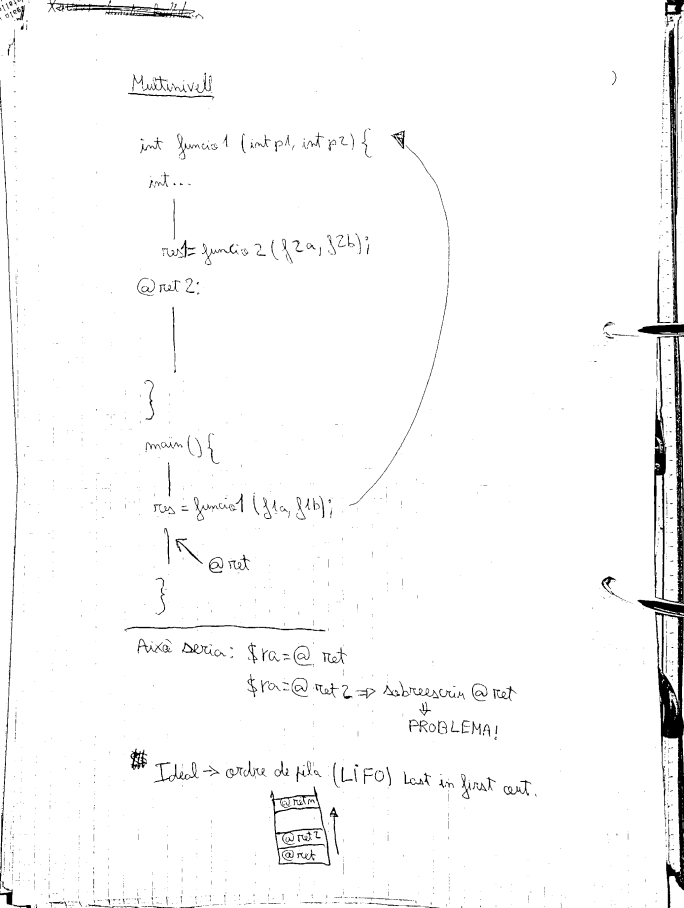 Multinivell
int funcio1 (int p1, int p2) {
int...
res1 = funcio2 (f2a, f2b);
@ret2:
}
main() {
res = funcio1 (f1a, f1b);
@ret
}
Això seria: $ra=@ ret
$ra=@ ret2 => sobreescriu @ret
⇓
PROBLEMA!
Ideal -> ordre de pila (LiFO) Last in first out.
@retn
@ret2
@ret